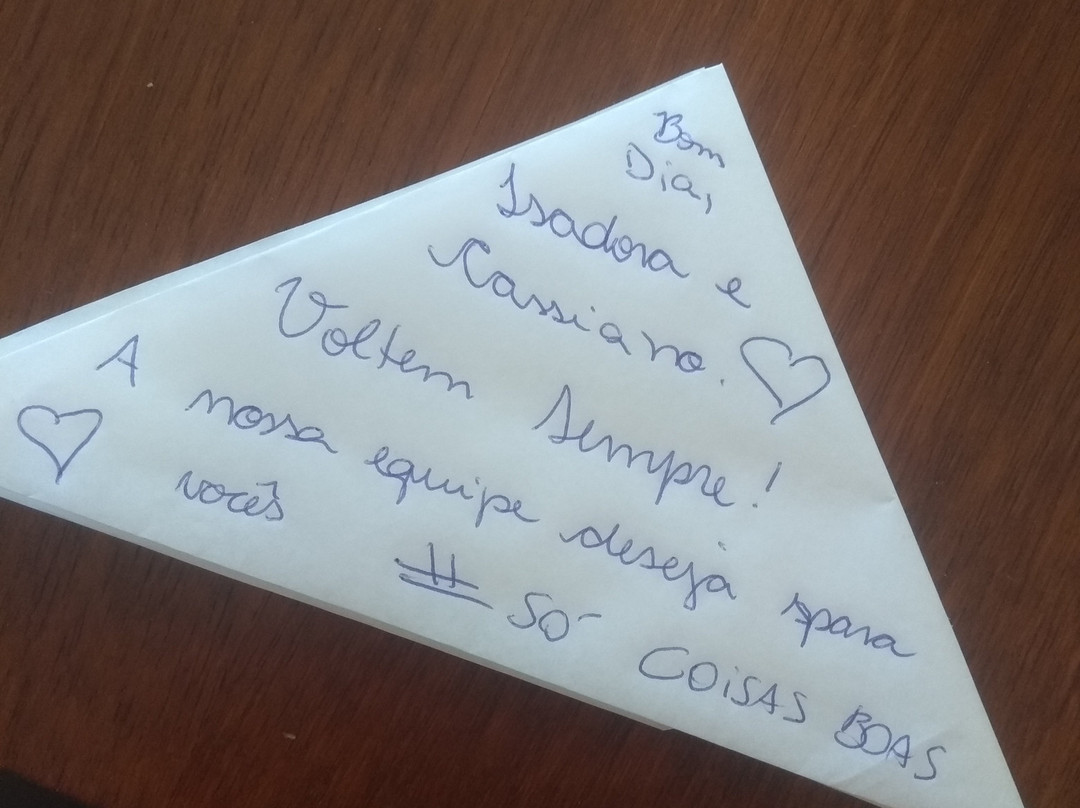 Bom
Dia,
Isadora e
Cassiano. ♡
Voltem sempre!
A nossa equipe deseja para
♡ vocês
# SÓ COISAS BOAS